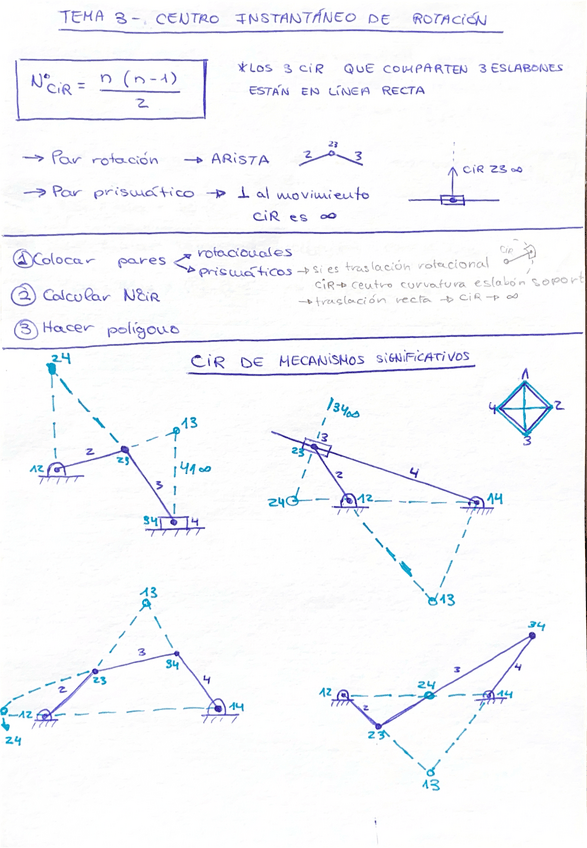 TEMA 3-. CENTRO INSTANTÁNEO DE ROTACIÓN
NºCIR = n (n-1) / 2
*LOS 3 CIR QUE COMPARTEN 3 ESLABONES
ESTÁN EN LÍNEA RECTA
→ Par rotación → ARISTA
2 23 3
CIR 23 ∞
→ Par prismático → ⊥ al movimiento
CIR es ∞
① Colocar pares rotacionales
prismáticos → Si es traslación rotacional
CIR → centro curvatura eslabón soport
→ traslación recta → CIR → ∞
② Calcular NºCIR
③ Hacer polígono
CIR DE MECANISMOS SIGNIFICATIVOS
24
13
2
12
23
41∞
3
34
4
34∞
13
23
2
4
24
12
14
13
1
4
2
3
13
3
34
23
2
4
12
14
24
34
3
4
12
24
14
2
23
13